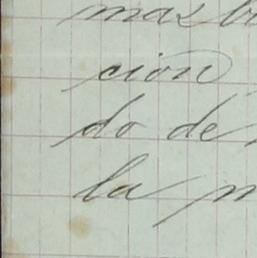 mas
ción
do de
la